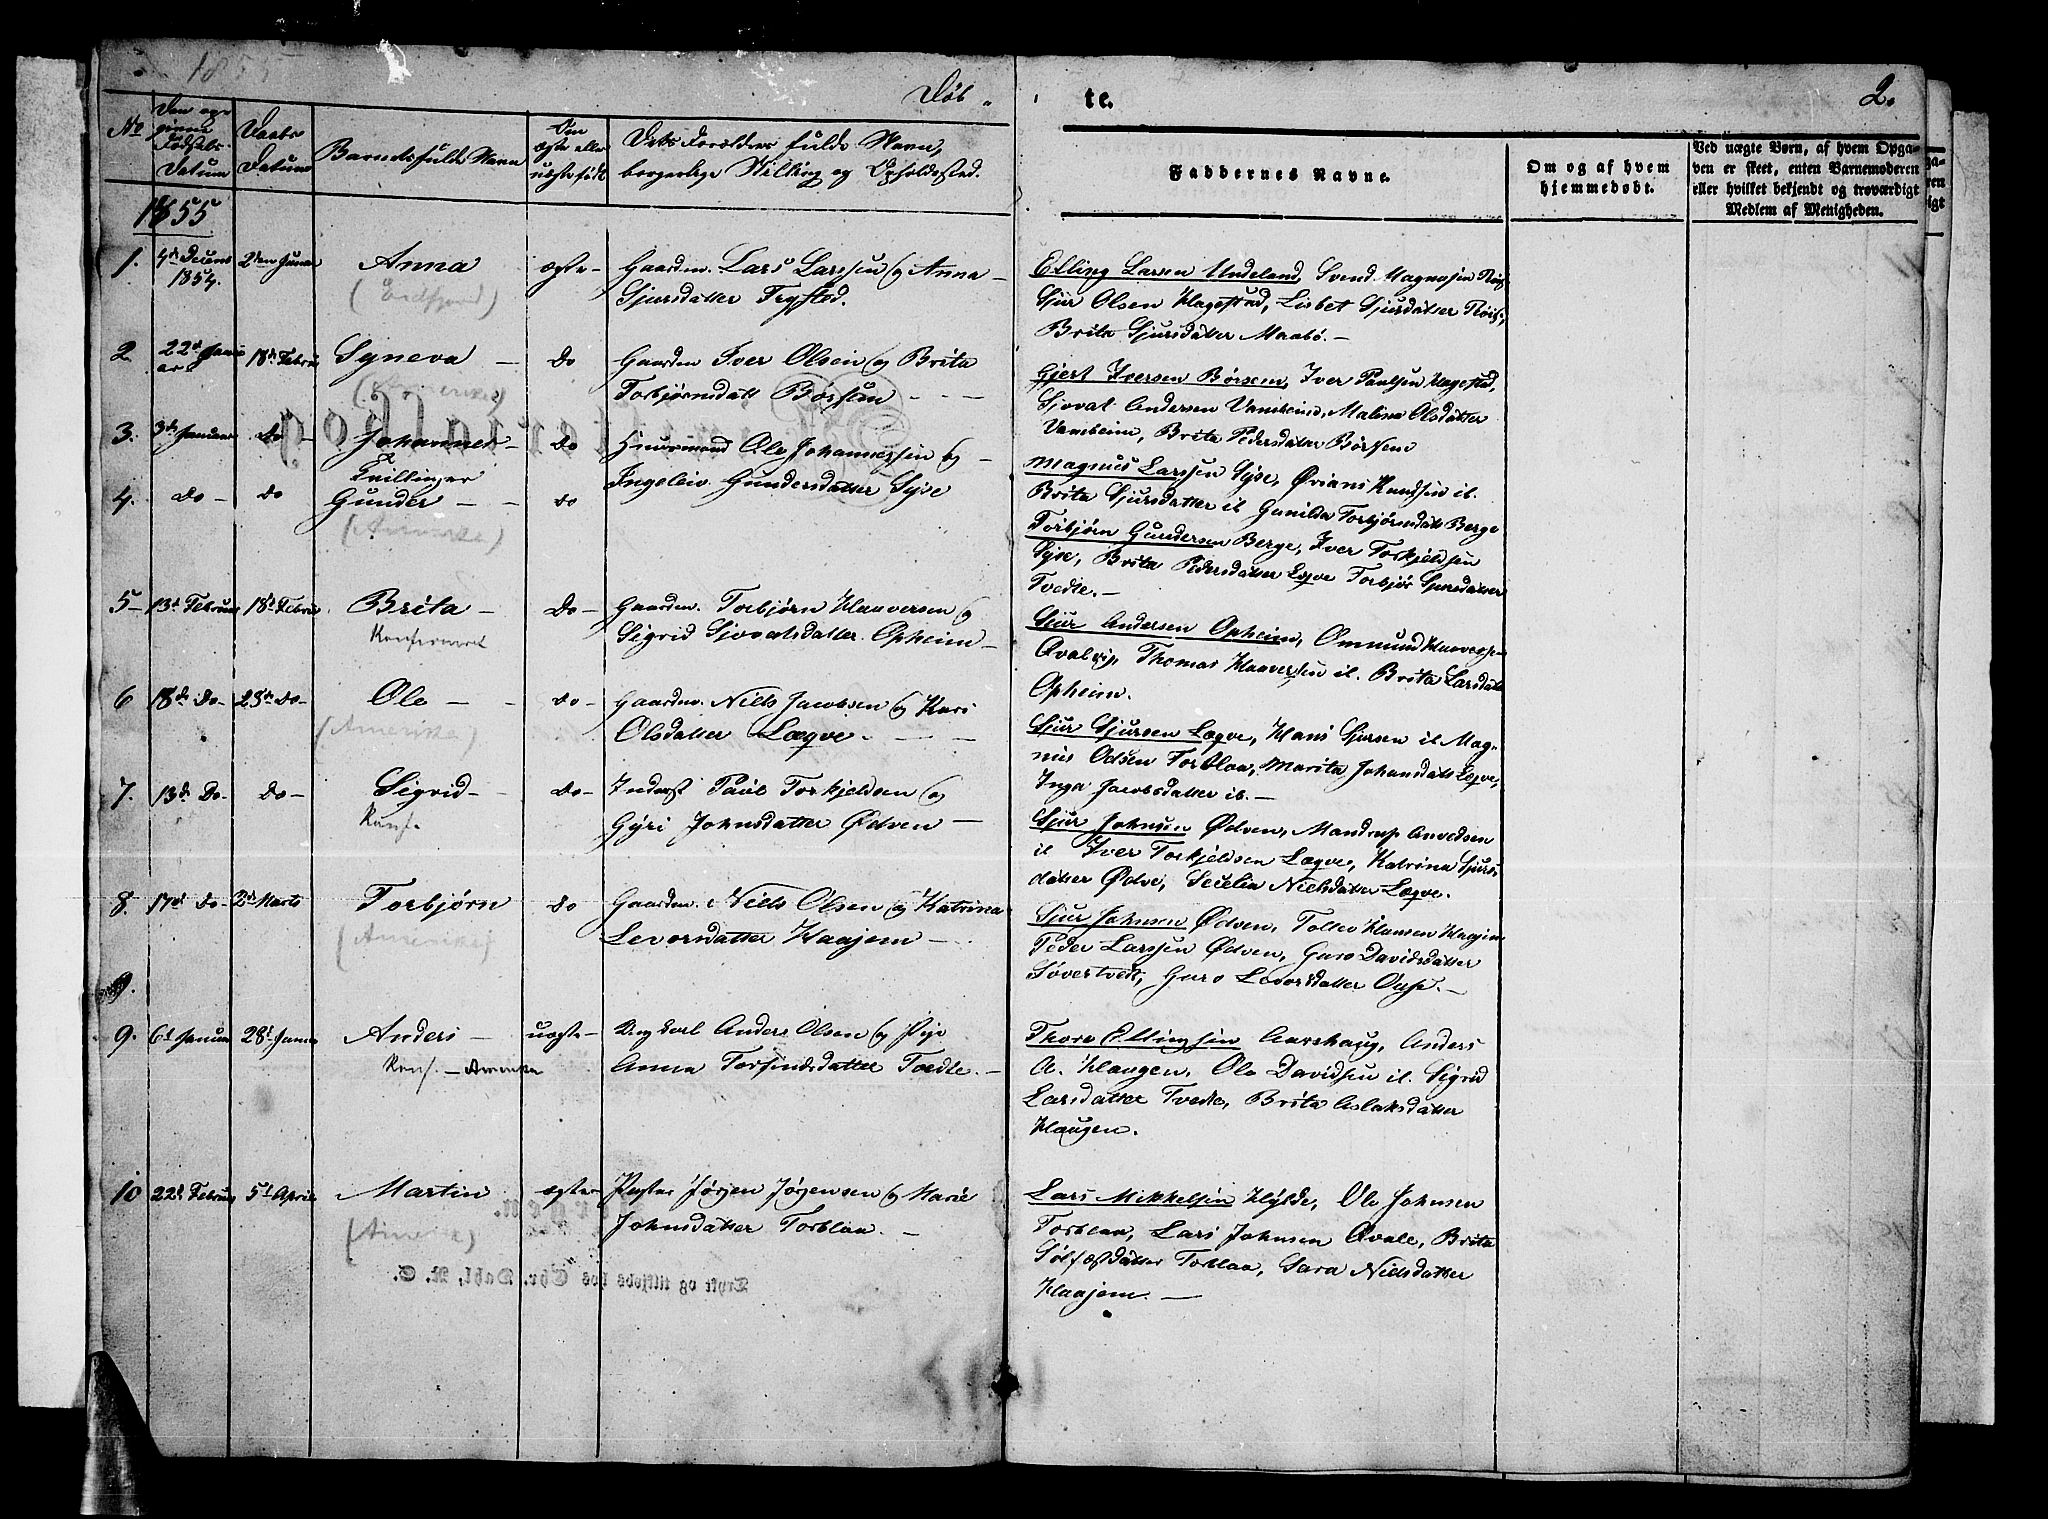 1855
Døb-
te.
2.
No
Den op-
givne
Fødsels-
Datum
Daabs
Datum
Barnets fulde Navn
Om
ægte eller
uægte født
Dets Forældres fulde Navn,
borgerlige Stilling og Opholdssted.
Faddernes Navne.
Om og af hvem
hjemmedøbt.
Ved uægte Børn, af hvem Opga-
ven er skeet, enten Barnemoderen
eller hvilket bekjendt og troværdigt
Medlem af Menigheden.
1855
1. 4de Decemb 1854. 2den Januar Anna ægte- Gaardm. Lars Larssen og Anna
(Eidfjord) Sjursdatter Trystad.
Elling Larsen Undeland, Svend Magnesen
Sjur Olsen Hagestad, Lisbet Sjursdatter
Brita Sjursdatter Maabø. -
2 22de Janu- ar 18de Februar Syneva - Do Gaardm Iver Olsen og Brita
(Amerika) Torbjørnsdatt Børsem - - -
Gjert Iversen Børsem, Iver Paulsen Hagestad,
Sjovat Andersen Vambeim, Malina Olsdatter
Vambeim, Brita Pedersdatter Børsem
3. 3de Januar Do - Johannes - Do Huusmand Ole Johannessen og -
Tvillinger
4. Do - Do Gunder - - Do Ingeleiv Gundersdatter Syse
(Amerika)
Magnus Larssen Syse, Ørians Knudsen ib.
Brita Sjursdatter ib Gunilda Torbjørnsdatt Berge
Torbjørn Gundersen Berge, Iver Torkjeldsen
Syse, Brita Pedersdatter Lægve Torbjør Sjursdatter
Tvedte. -
5- 13de Februar 18de Februar Brita - Do - Gaardm. Torbjørn Haaversen og
Konfirmeret Sigrid Sjovatsdatter Opheim -
Sjur Andersen Opheim, Ommund Haaversen
Qvalvig, Thomas Haaversen ib. Brita Larsdatt
Opheim.
6 18de Do- 25de Do- Ole - - Do - Gaardm. Niels Jacobsen og Kari
(Amerika) Olsdatter Lægve. - - -
Sjur Sjursen Lægve, Hans Sjursen ib Mag-
nus Odsen Torblaa, Marita Johansdatt Lægve,
Inga Jacobsdatter ib. -
7. 13de Do- Do - Sigrid - Do - Inderst Paul Torkjeldsen og
Konf. Gyri Johnsdatter Ødven -
Sjur Johnsen Ødven, Mandrup Anvedsen
ib Iver Torkjeldsen Lægve, Katrina Sjurs-
datter Ødve, Secelia Nielsdatter Lægve.
8. 17de Do- 2de Marts Torbjørn Do Gaardm. Niels Olsen og Katrina
(Amerika) Levorsdatter Haajem -
Sjur Johnsen Ødven, Tollev Hansen Haajem
Peder Larssen Ødven, Guro Davidsdatter
Søvertvedt, Guro Levorsdatter -
9.
9. 6te Januar 28de Januar Anders - uægte - Ungkarl Anders Olsen og Pige
Konf. - Amerika Anna Torfindsdatter Tvedte. -
Thore Ellingsen Aarshaug, Anders
A. Haugen, Ole Davidsen ib. Sigrid
Larsdatter Tvedte, Brita Aslaksdatter
Haugen.
10 22de Februar 5te April Martin ægte - Jørgen Jørgensen og Marie
(Amerika) Johnsdatter Torblaa. -
Lars Mikkelsen Hylde, Ole Johnsen
Torblaa, Lars Johnsen Qvale, Brita
Solfæstdatter Torblaa, Sara Nielsdatter
Haajem. -
Ministerialbog
Trykt og tilkjøbs hos Chr. Dahl, R. S.